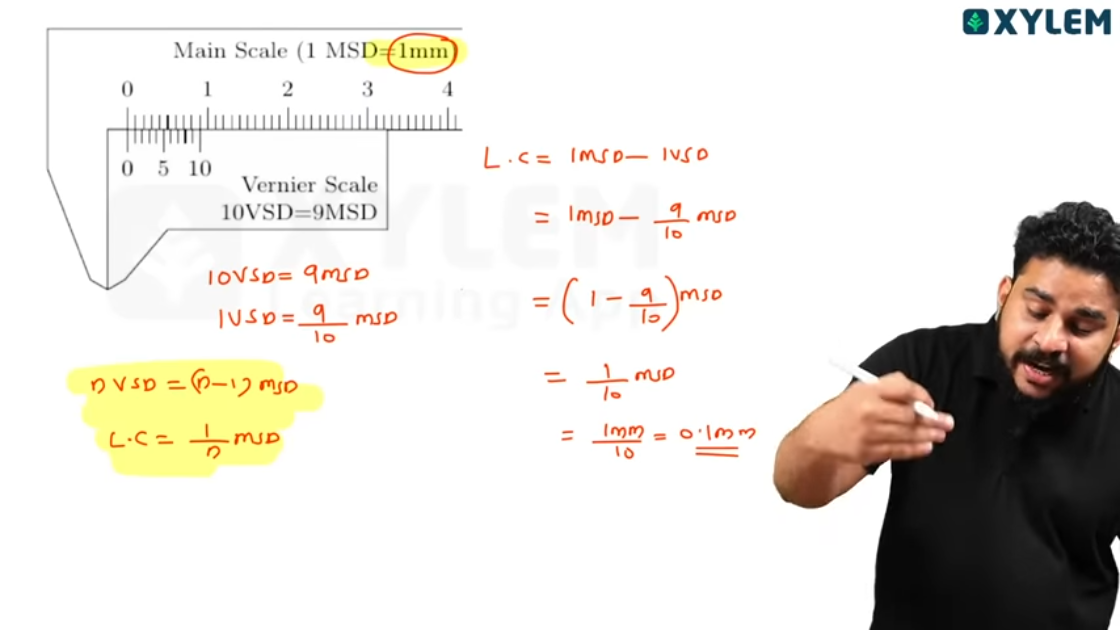 XYLEM
Main Scale (1 MSD=1mm)
0 1 2 3 4
0 5 10
Vernier Scale
10VSD=9MSD
10VSD= 9MSD
1VSD= 9/10 MSD
n VSD = (n-1) MSD
L.C = 1/n MSD
L.C = 1MSD - 1VSD
= 1MSD - 9/10 MSD
= (1 - 9/10) MSD
= 1/10 MSD
= 1mm/10 = 0.1mm
XYLEM
Learning App